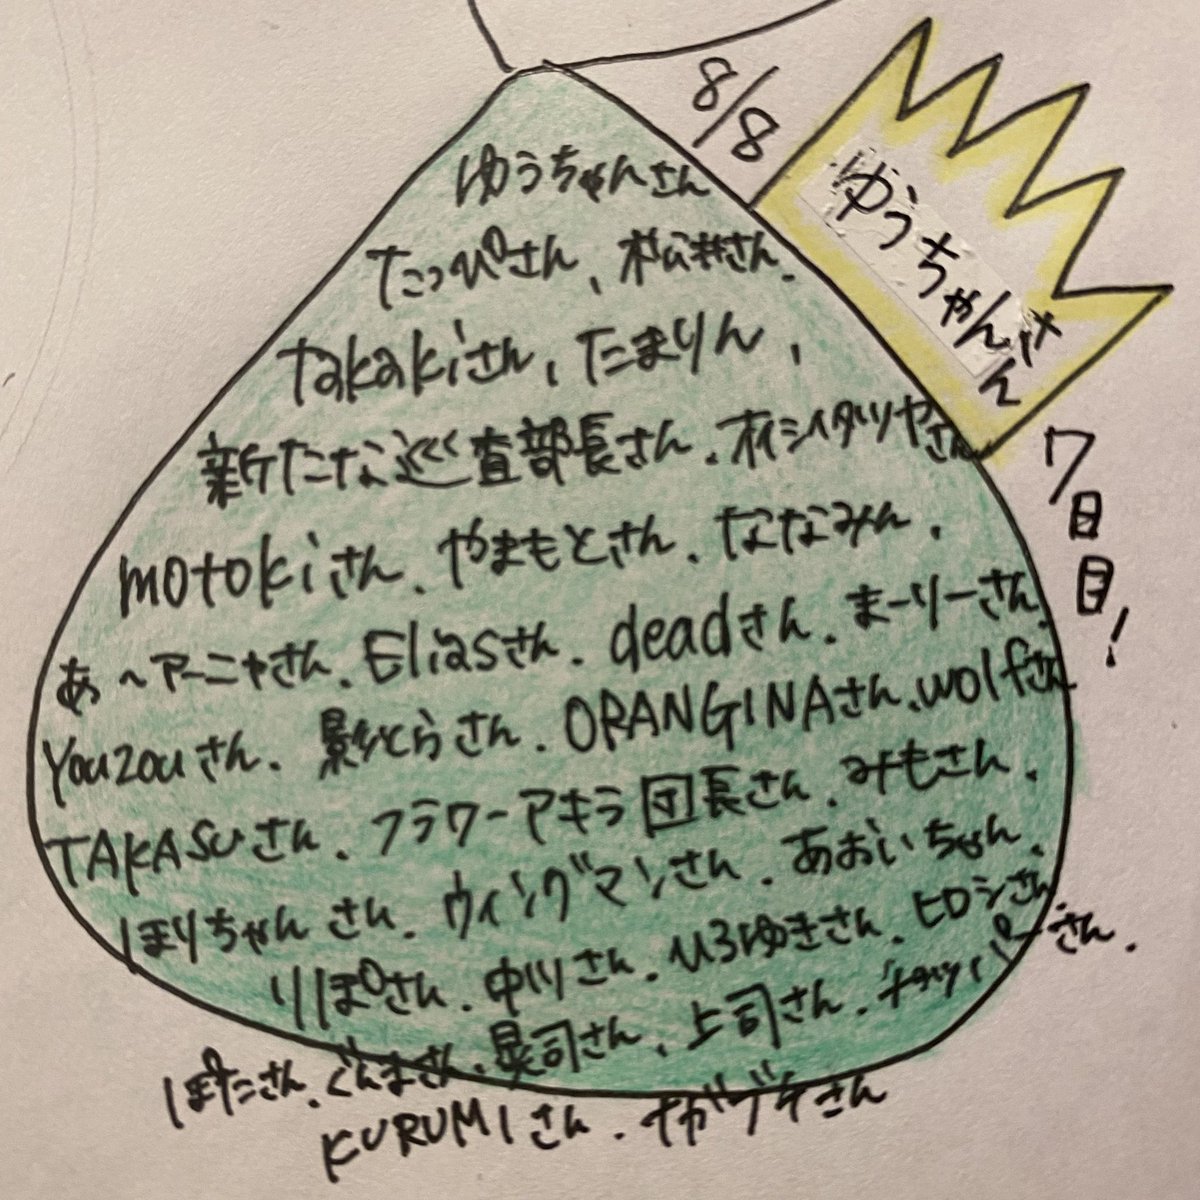 8/8
ゆうちゃんさん
7日目!
ゆうちゃんさん
たっぴさん、松井さん、
Takakiさん、たまりん、
新たな巡査部長さん、オイシイタツヤさん
motokiさん、やまもとさん、ななみん、
あ〜アーニャさん、Eliasさん、deadさん、まーりーさん、
Youzouさん、影虎さん、ORANGINAさん、wolfさん
TAKASUさん、フラワーアキラ団長さん、みもさん、
ほりちゃんさん、ウィングマンさん、あおいちゃん、
りぽさん、中川さん、ひろゆきさん、ヒロシさん
ぽたこさん、ぐんまさん、晃司さん、上司さん、さん、
KURUMIさん、ナガブチさん